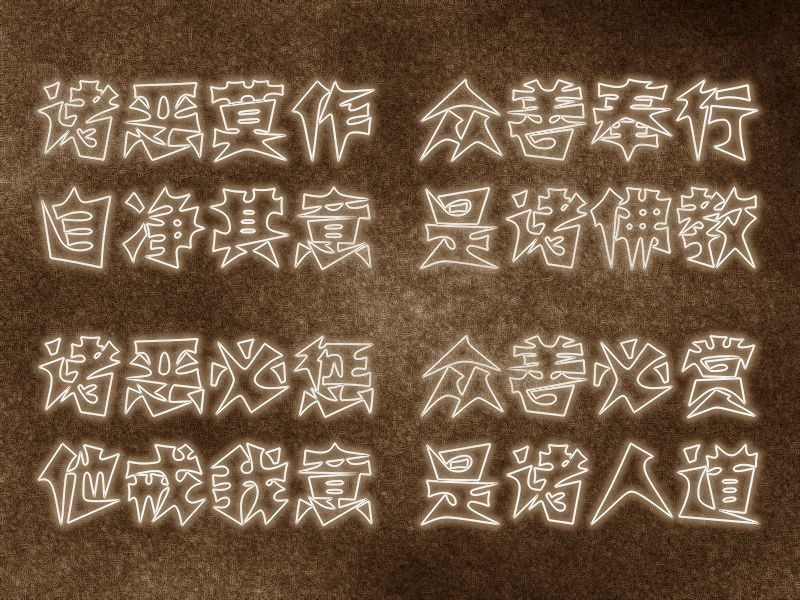 诸恶莫作 众善奉行
自净其意 是诸佛教
诸恶必惩 众善必赏
他成我意 是诸人道